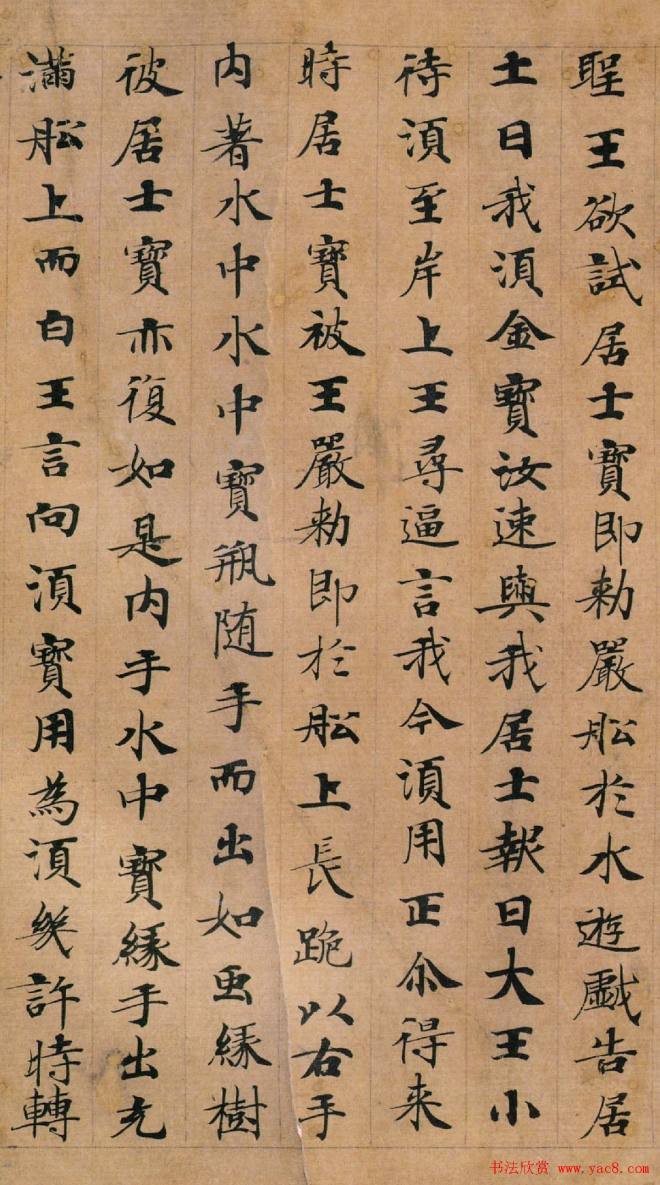 聖王欲試居士寶即勑嚴舩於水遊戲告居
士曰我湏金寶汝速與我居士報曰大王小
待湏至岸上王尋逼言我今湏用正尒得来
時居士寶被王嚴勑即於舩上長跪以右手
内著水中水中寶瓶随手而出如虫緣樹
彼居士寶亦復如是内手水中寶緣手出充
滿舩上而白王言向湏寶用為湏幾許時轉
书法欣赏 www.yac8.com